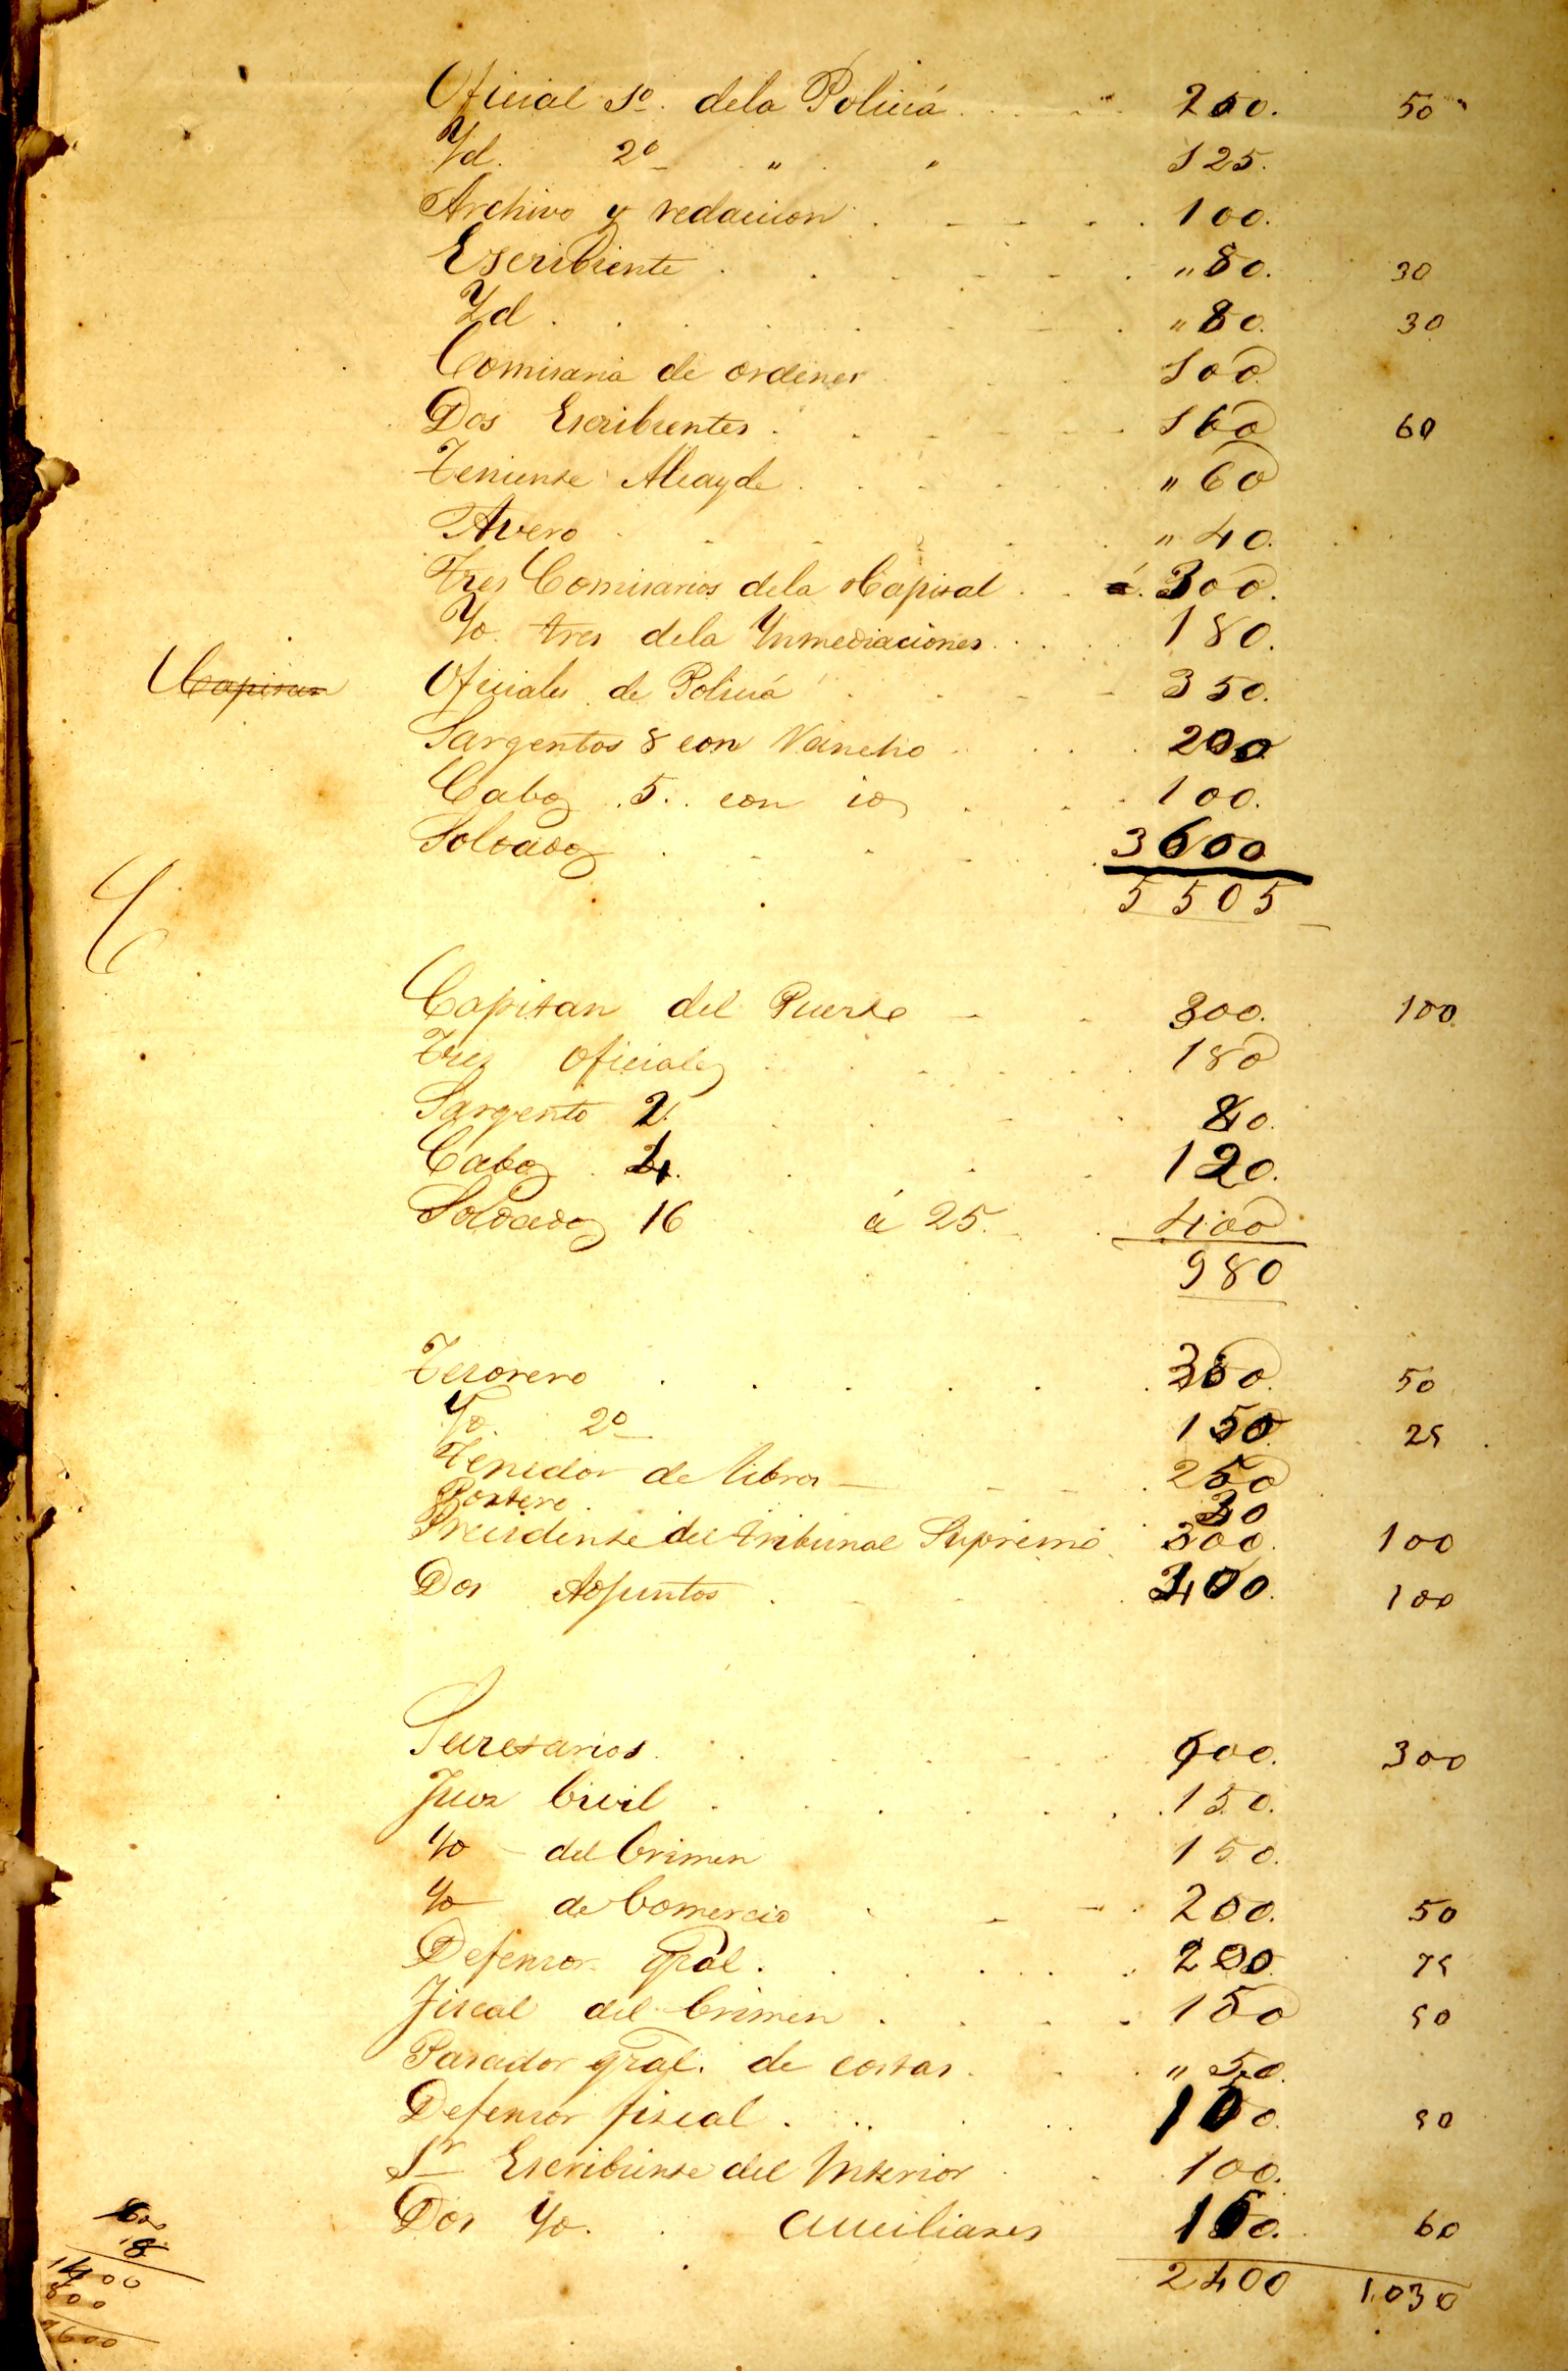 Oficial 1º. dela Policiá . . . 200. 50
Yd. 2º " " 125.
Archivo y redaccion . . . . 100.
Escribiente . . . . . " 80. 30
Yd . . . . . . " 80. 30
Comisaria de ordenes . . 100
Dos Escribientes . . . . 160 60
Teniente Alcayde . . . . " 60
" 40.
Tres Comisarios dela Capital . . á. 300.
Yd. tres dela Ynmediaciones . . . 180.
Capitan Oficiales de Policiá . . . 350.
Sargentos 8 con Rancho . . . 200
Cabos . 5 . . con id . . . 100.
Soldados . . . . 3600
5505
Capitan del Puerto - . 300. 100
Tres oficiales . . . . 180
Sargento 2. . . . 80.
Cabos . 4. . . . 120.
Soldados 16 á 25. 400
980
Tesorero . . . . . . 50
Yd. 2º 150 25
Tenedor de libros - . . 250
Portero . 30
Presidente del tribunal Supremo. 300. 100
Dos Adjuntos . . . . 400. 100
Secretarios . . . . 600. 300
Juez Civil . . . . . 150.
Yd - del Crimen 150.
Yd de Comercio . . . 200. 50
Defensor gral . . . . . 200 75
Fiscal del Crimen . . . . 150 50
Tasador gral. de costas . . " 50.
Defensor fiscal . . . . 100. 50
1r Escribiente del Interior . . 100.
Dos Yd. . auciliares 150. 60
2400 1.030
18
800